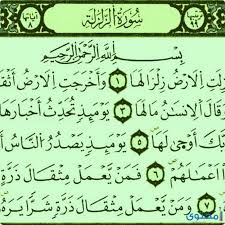 سُورَةُ الزَّلْزَلَةِ
آياتها ٨
بِسْمِ اللَّهِ الرَّحْمَٰنِ الرَّحِيمِ
زِلَتِ الْأَرْضُ زِلْزَالَهَا ١ وَأَخْرَجَتِ الْأَرْضُ أَثْقَ
قَالَ الْإِنسَٰنُ مَا لَهَا ٣ يَوْمَئِذٍ تُحَدِّثُ أَخْبَارَ
بَّكَ أَوْحَىٰ لَهَا ٥ يَوْمَئِذٍ يَصْدُرُ النَّاسُ أَ
ا أَعْمَٰلَهُمْ ٦ فَمَن يَعْمَلْ مِثْقَالَ ذَرَّةٍ
٧ وَمَن يَعْمَلْ مِثْقَالَ ذَرَّةٍ شَرًّا يَرَهُ